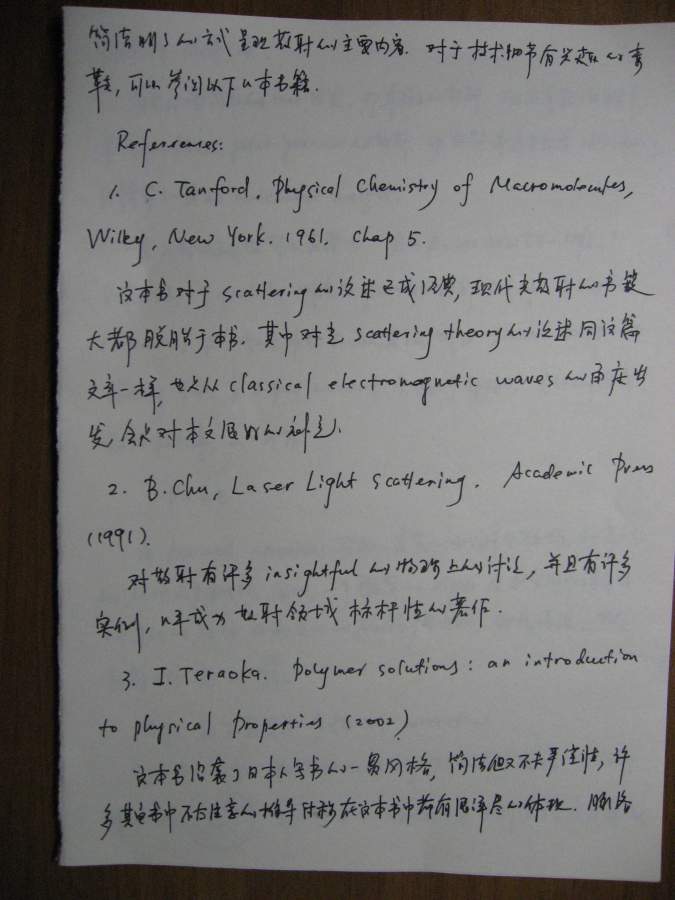 简洁明了的方式呈现散射的主要内容. 对于技术细节有兴趣的童
鞋, 可以参阅以下几本书籍.
References:
1. C. Tanford, Physical Chemistry of Macromolecules,
Wiley, New York. 1961. Chap 5.
这本书对于 scattering 的论述已成经典, 现代光散射的书籍
大都脱胎于本书. 其中对光 scattering theory 的论述同这篇
文章一样, 也是从 classical electromagnetic waves 的角度出
发, 会是对本文很好的补充.
2. B. Chu, Laser Light Scattering. Academic Press
(1991).
对散射有许多 insightful 的物理上的讨论, 并且有许多
实例, 几乎成为散射领域标杆性的著作.
3. I. Teraoka. Polymer solutions: an introduction
to physical Properties (2002)
这本书沿袭了日本人写书的一贯风格, 简洁但又不失严谨性, 许
多其它书中不太注意的推导细节在这本书中都有很详尽的体现. 脉络